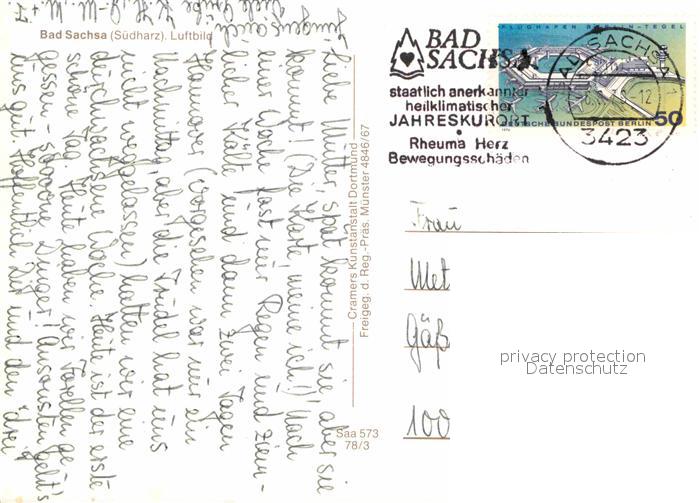 Bad Sachsa (Südharz). Luftbild
Liebe Mutter, spät kommt sie, aber sie
kommt! (Die Karte meine ich!) Nach
einer Woche fast nur Regen und ziem-
licher Kälte und dann zwei Tagen
Hannover (vorgesehen war nur ein
Nachmittag, aber die Trudel hat uns
nicht weggelassen) hatten wir eine
durchwachsene Woche. Heute ist der erste
schöne Tag. Heute haben wir Forellen ge-
gessen - Dinger! Ansonsten geht's
uns gut. Hoffentlich Dir und den drei
auch.
Viele Grüße
Cramers Kunstanstalt Dortmund
Freigeg. d. Reg.-Präs. Münster 4846/67
Saa 573
78/3
BAD
SACHSA
staatlich anerkannter
heilklimatischer
JAHRESKURORT
Rheuma Herz
Bewegungsschäden
FLUGHAFEN BERLIN-TEGEL
DEUTSCHE BUNDESPOST BERLIN
50
SACHSA 1
12
3423
Frau
Met
Gäß
100
privacy protection
Datenschutz